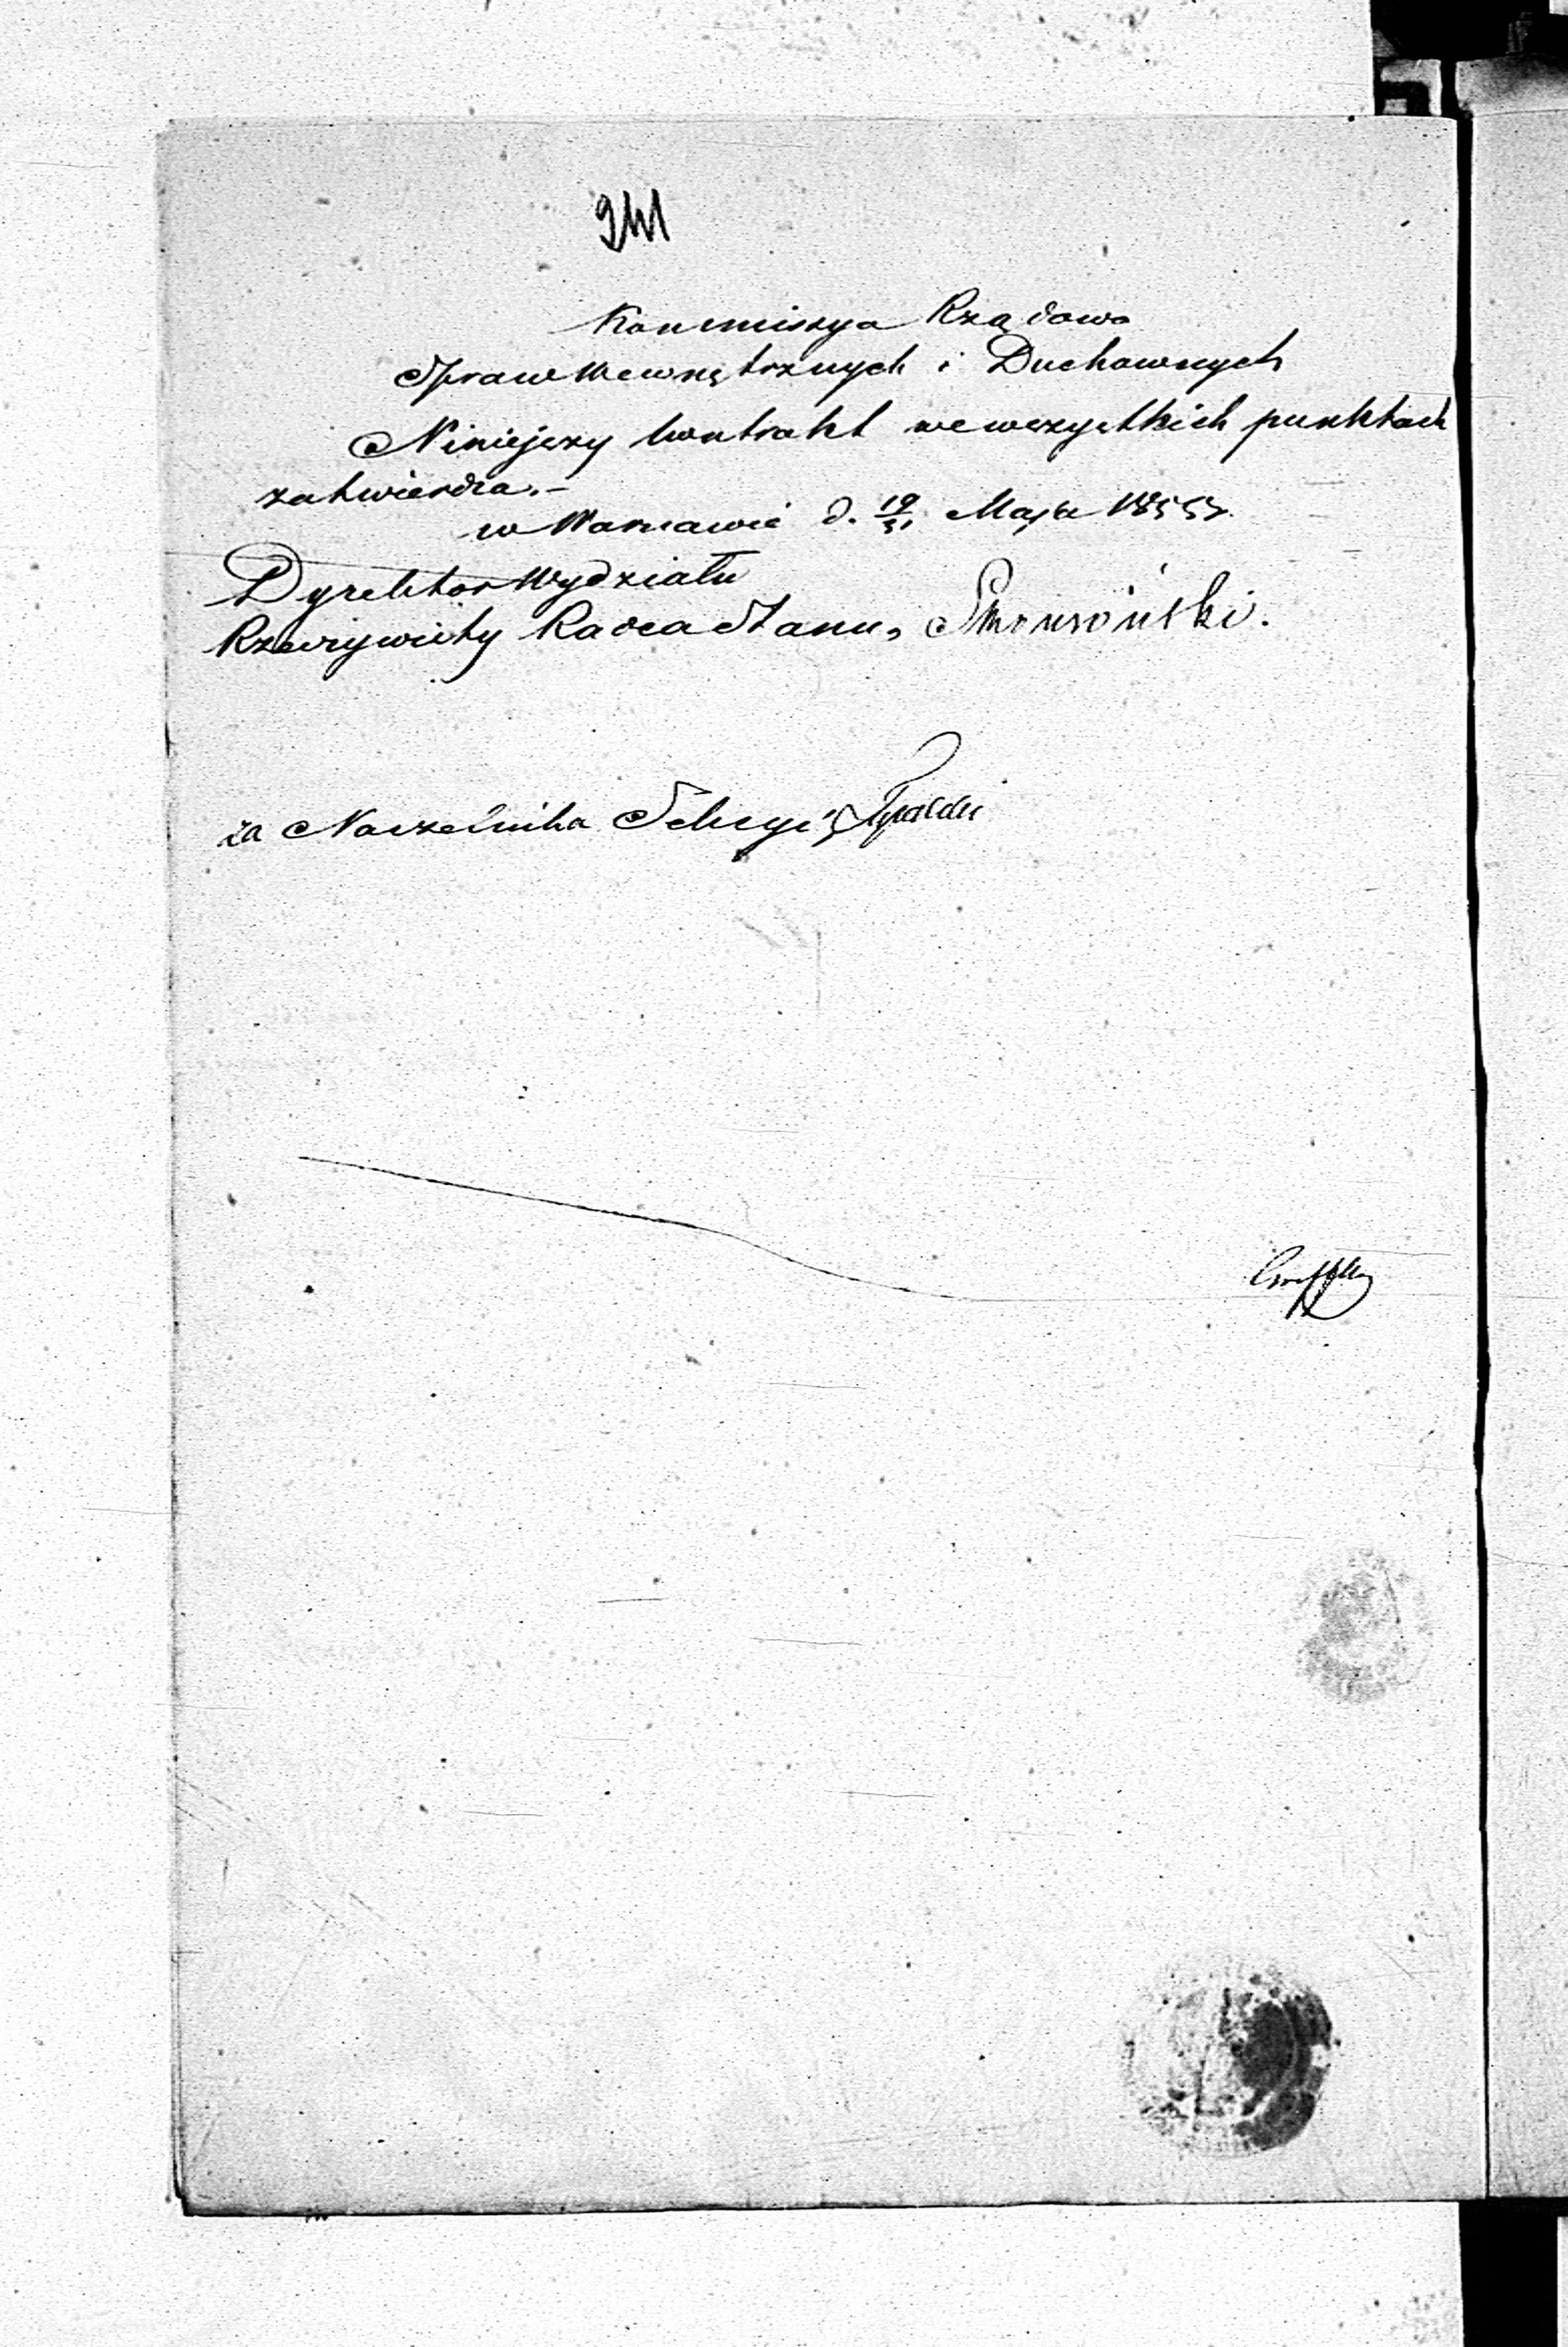 941
Kommissya Rządowa
Spraw Wewnętrznych i Duchownych
Niniejszy kontrakt we wszystkich punktach
zatwierdza.-
w Warszawie d. 19/31 Maja 1855 r.
Dyrektor Wydziału
Rzeczywisty Radca Stanu,
za Naczelnika Sekcyi,